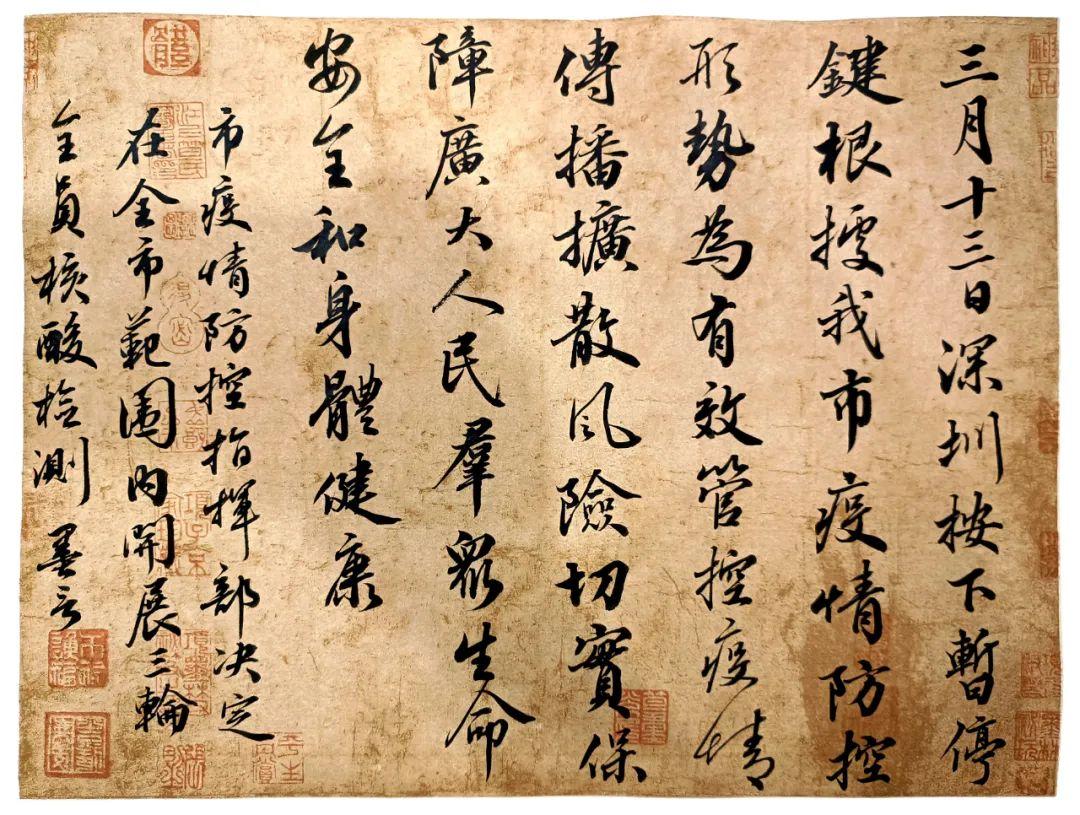 三月十三日深圳按下暫停
鍵根據我市疫情防控
形勢為有效管控疫情
傳播擴散風險切實保
障廣大人民羣眾生命
安全和身體健康
市疫情防控指揮部决定
在全市範圍内開展三輪
全員核酸檢測